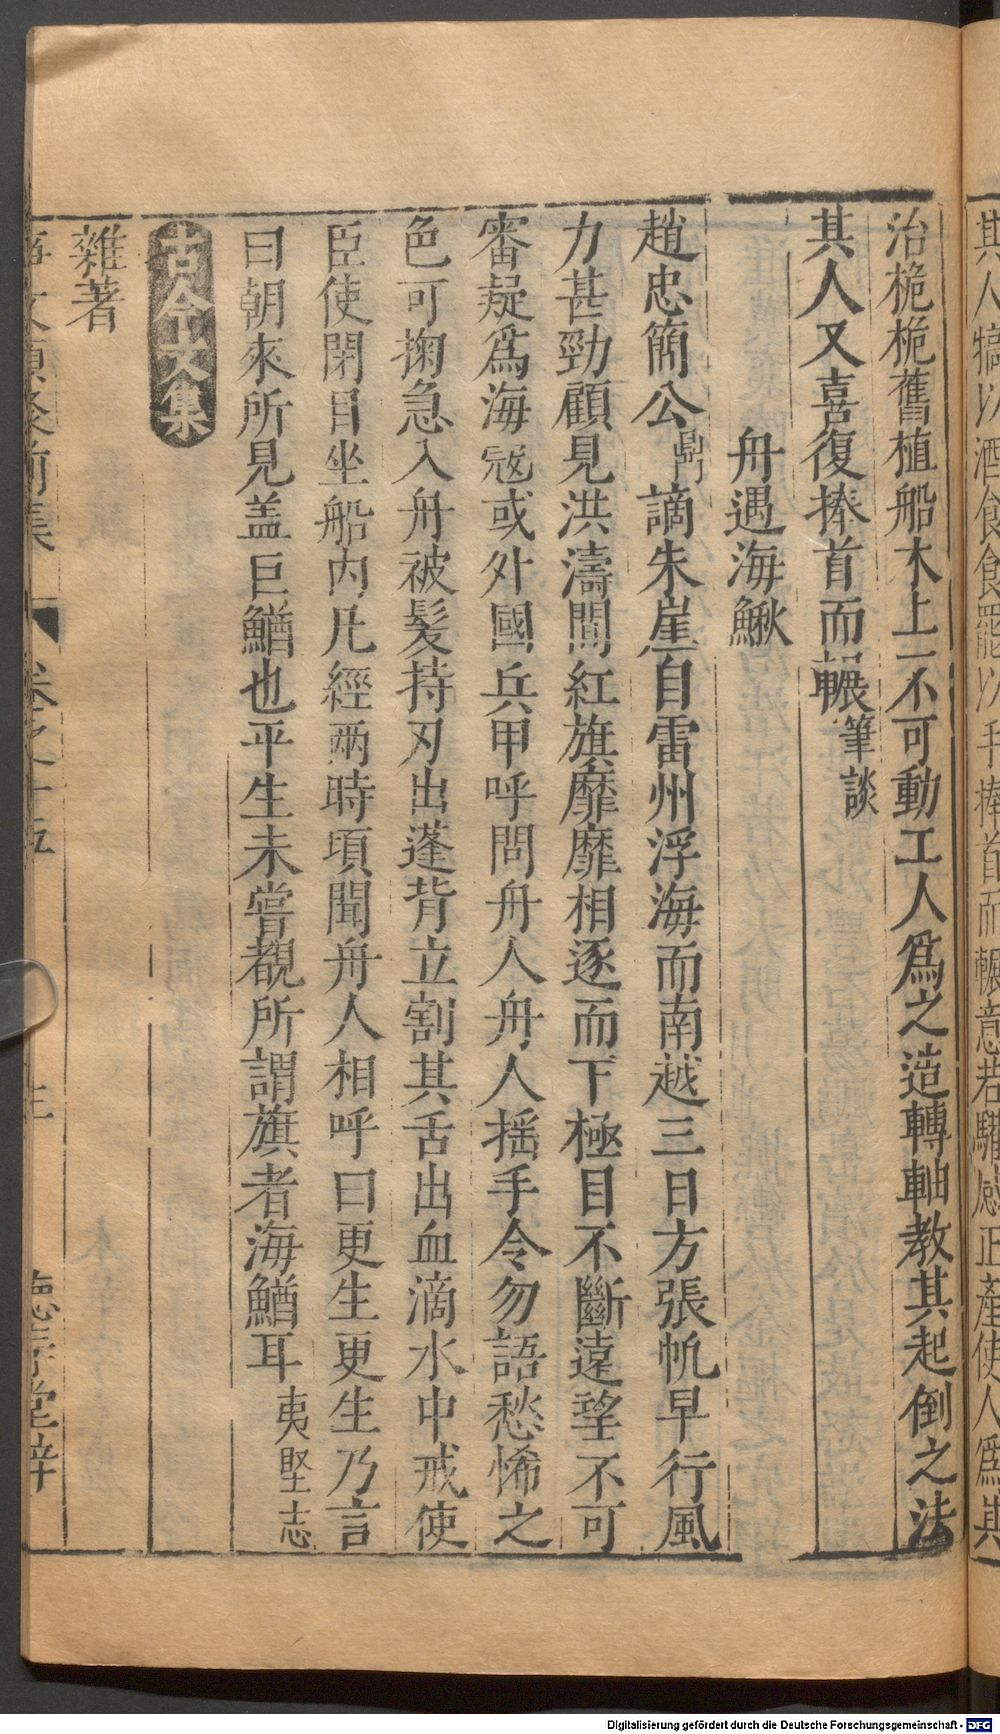 其人犒以酒食食罷以手捧首而輾意若驩感正產使人爲其
治桅桅舊植船木上不可動工人爲之造轉軸教其起倒之法
其人又喜復捧首而輾筆談
舟遇海鰍
趙忠簡公鼎謫朱崖自雷州浮海而南越三日方張帆早行風
力甚勁顧見洪濤間紅旗靡靡相逐而下極目不斷遠望不可
審疑爲海寇或外國兵甲呼問舟人舟人搖手令勿語愁怖之
色可掬急入舟被髪持刃出蓬背立割其舌出血滴水中戒使
臣使閉目坐船內凡經兩時頃聞舟人相呼曰更生更生乃言
曰朝來所見盖巨鰌也平生未嘗覩所謂旗者海鰌耳夷堅志
古今文集
雜著
事文類聚前集 卷之十五 三 德壽堂梓
Digitalisierung gefördert durch die Deutsche Forschungsgemeinschaft - DFG